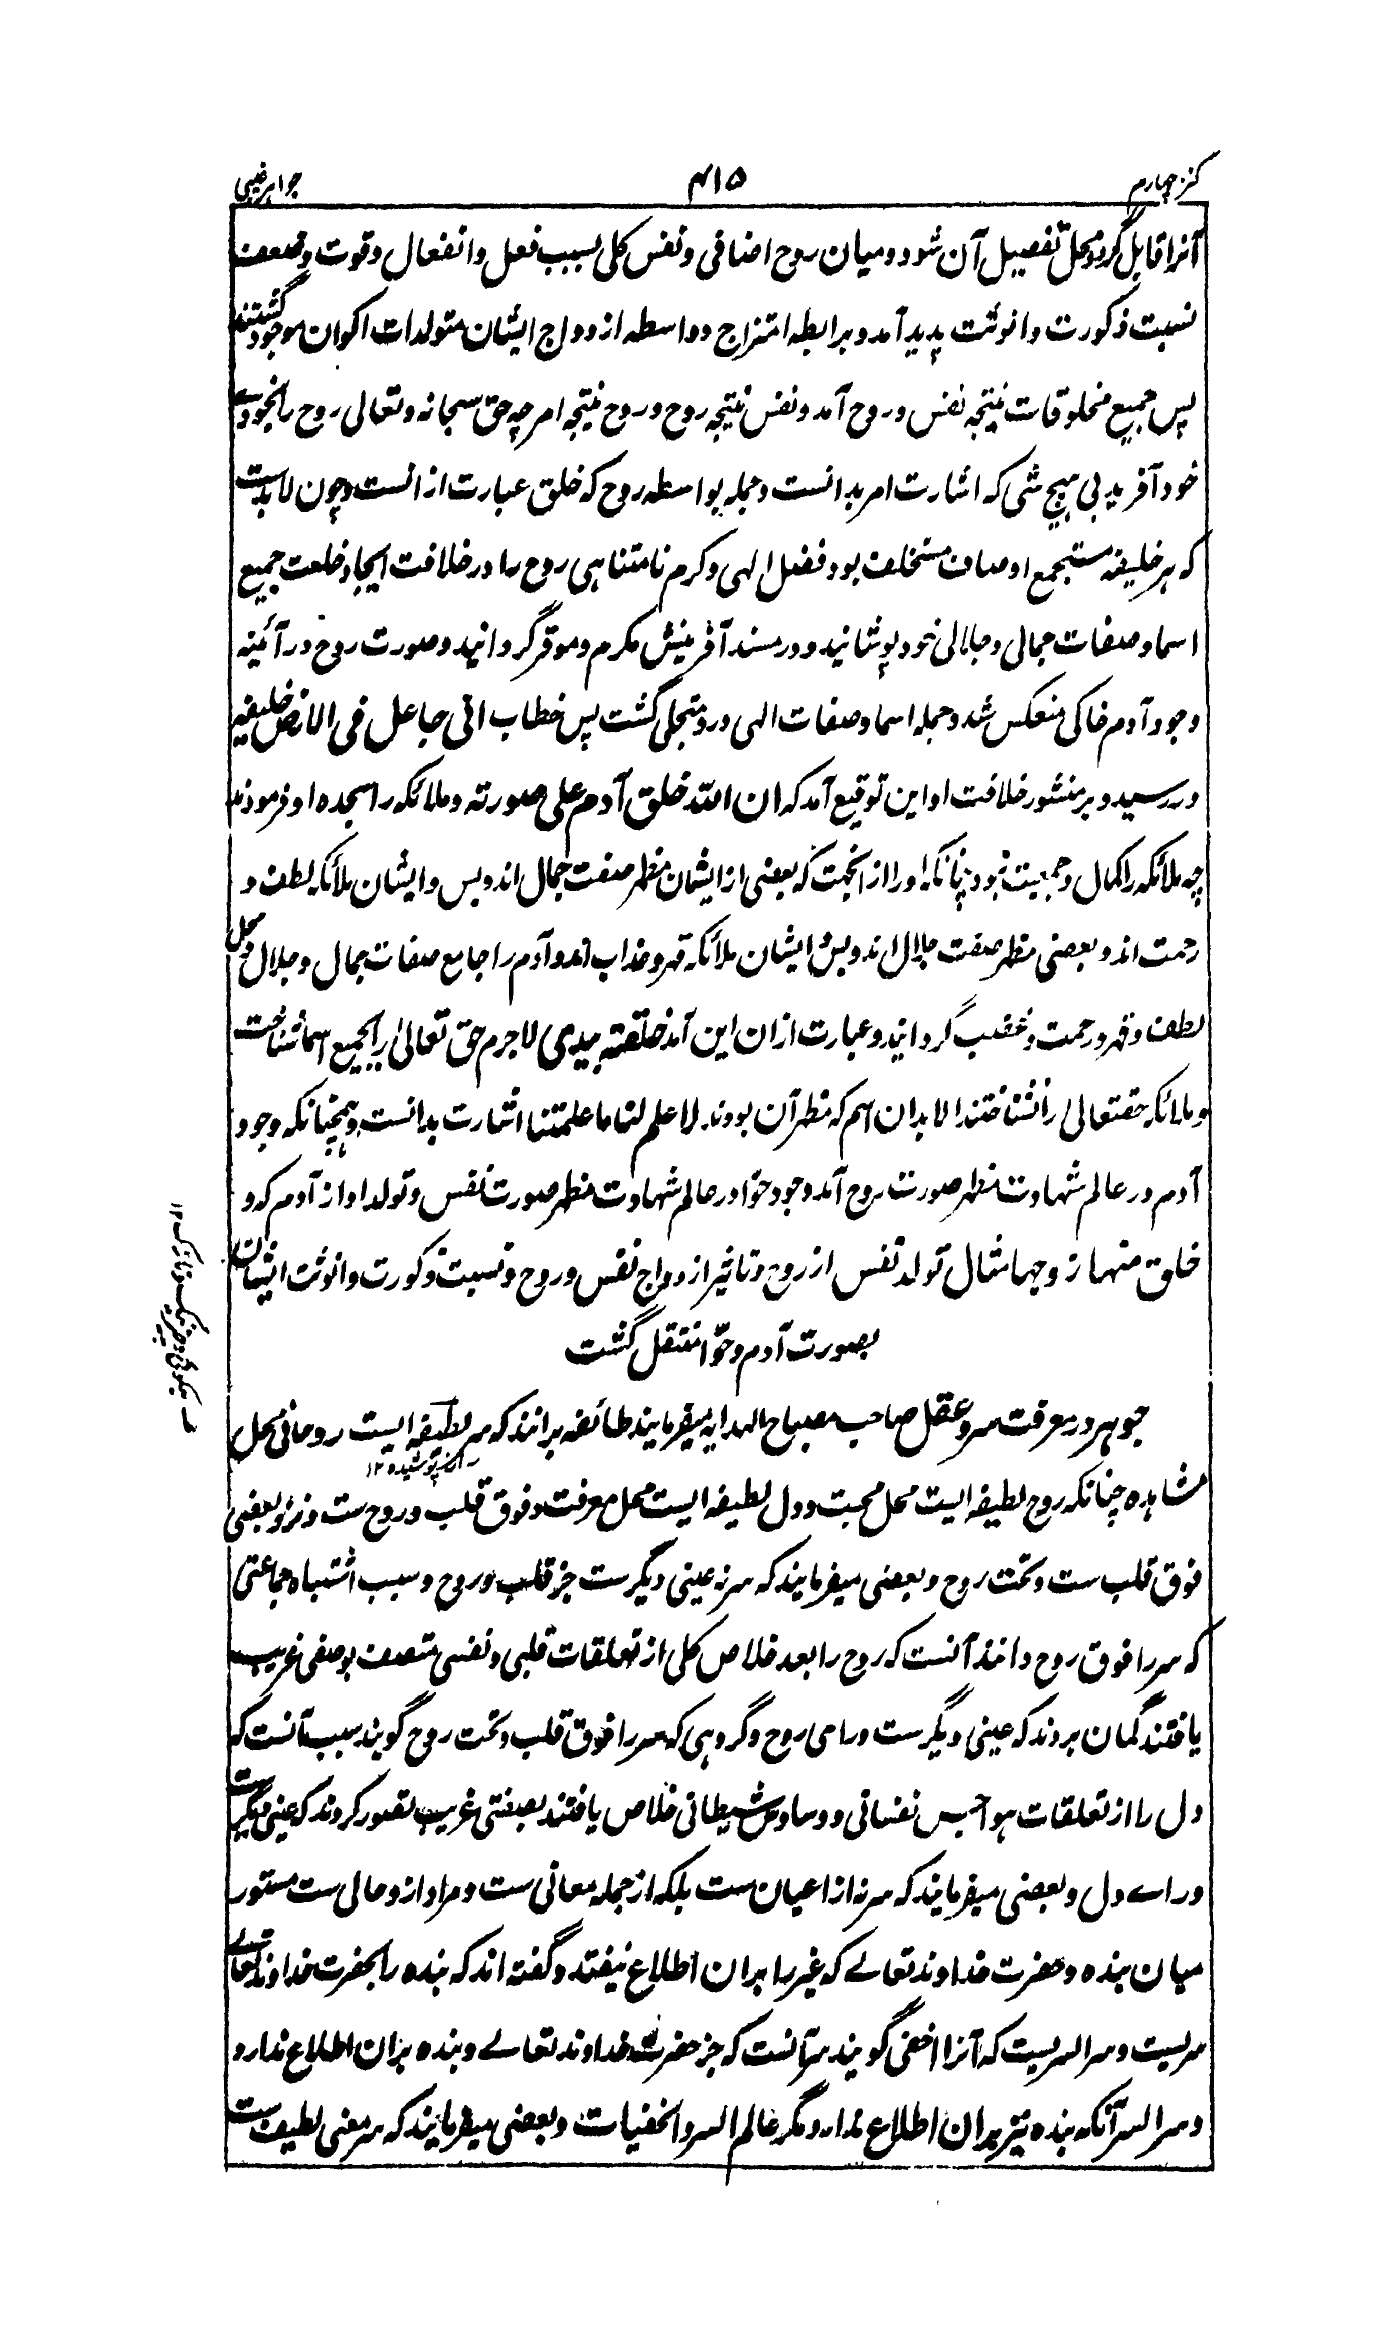 کنز چهارم
۴۱۵
جواهر غیبی
آنرا قابل گردد محل تفصیل آن شود و میان روح اضافی و نفس کلی بسبب فعل و انفعال و قوت و ضعف
نسبت ذکورت و انوثت پدید آمد و برابطه امتزاج و واسطه ازدواج ایشان متولدات اکوان موجود گشتند
پس جمیع مخلوقات نتیجه نفس و روح آمد و نفس نتیجه روح و روح نتیجه امر چه حق سبحانه و تعالی روح را بخودی
خود آفرید بی هیچ شی که اشارت امر بدانست و جمله بواسطه روح که خلق عبارت ازانست و چون لابدست
که هر خلیفه مستجمع اوصاف مستخلف بود فضل الهی و کرم نامتناهی روح را در خلافت ایجاد خلعت جمیع
اسما و صفات جمالی و جلالی خود پوشانید و در مسند آفرینش مکرم و موقر گردانید و صورت روح در آئینه
وجود آدم خاکی منعکس شد و جمله اسما و صفات الهی درو متجلی گشت پس خطاب انی جاعل فی الارض خلیفه
در رسید و بر منشور خلافت او این توقیع آمد که ان الله خلق آدم علی صورته و ملائکه را سجده او فرمودند
چه ملائکه را کمال و جمعیت نبود چنانکه او را از انجهت که بعضی از ایشان مظهر صفت جمال اند و بس و ایشان ملائکه لطف و
رحمت اند و بعضی مظهر صفت جلال اند و بس ایشان ملائکه قهر و عذاب اند و آدم را جامع صفات جمال و جلال و محل
لطف و قهر و رحمت و غضب گردانید و عبارت ازان این آمد خلقته بیدی لاجرم حق تعالیٰ را بجمیع اسما شناخت
و ملائکه حقتعالی را نشناختند الا بدان اسم که مظهر آن بودند لا علم لنا ما علمتنا اشارت بدانست و همچنانکه وجود
آدم در عالم شهادت مظهر صورت روح آمد وجود حوا در عالم شهادت مظهر صورت نفس و تولد او از آدم که و
خلق منها زوجها مثال تولد نفس از روح و تاثیر ازدواج نفس و روح و نسبت ذکورت و انوثت ایشان
بصورت آدم و حوّا منتقل گشت
جوهر در معرفت سر و عقل صاحب مصباح الهدایه میفرمایند طائفه برانند که سر لطیفه ایست روحانی محل
راز پوشیده ۱۲
مشاهده چنانکه روح لطیفه ایست محل محبت و دل لطیفه ایست محل معرفت و فوق قلب و روح ست و نزد بعضی
فوق قلب ست و تحت روح و بعضی میفرمایند که سر نه عینی دیگر ست جز قلب و روح و سبب اشتباه جماعتی
که سر را فوق روح دانند آنست که روح را بعد خلاص کلی از تعلقات قلبی و نفسی متصف بوصفی غریب
یافتند گمان بردند که عینی دیگر ست ورای روح و گروهی که سر را فوق قلب و تحت روح گویند سبب آنست که
دل را از تعلقات هواجس نفسانی و وساوس شیطانی خلاص یافتند بصفتی غریب تصور کردند که عینی دیگر ست
ورای دل و بعضی میفرمایند که سر نه از اعیان ست بلکه از جمله معانی ست و مراد ازو حالی ست مستور
میان بنده و حضرت خداوند تعالے که غیر را بران اطلاع نیفتد و گفته اند که بنده را بحضرت خداوند تعالے
سریست و سر السریست که آنرا اخفی گویند سر آنست که جز حضرت خداوند تعالے و بنده بران اطلاع ندارد
و سر السر آنکه بنده نیز بدان اطلاع ندارد مگر عالم السر و الخفیات و بعضی میفرمایند که سر معنی لطیف ست